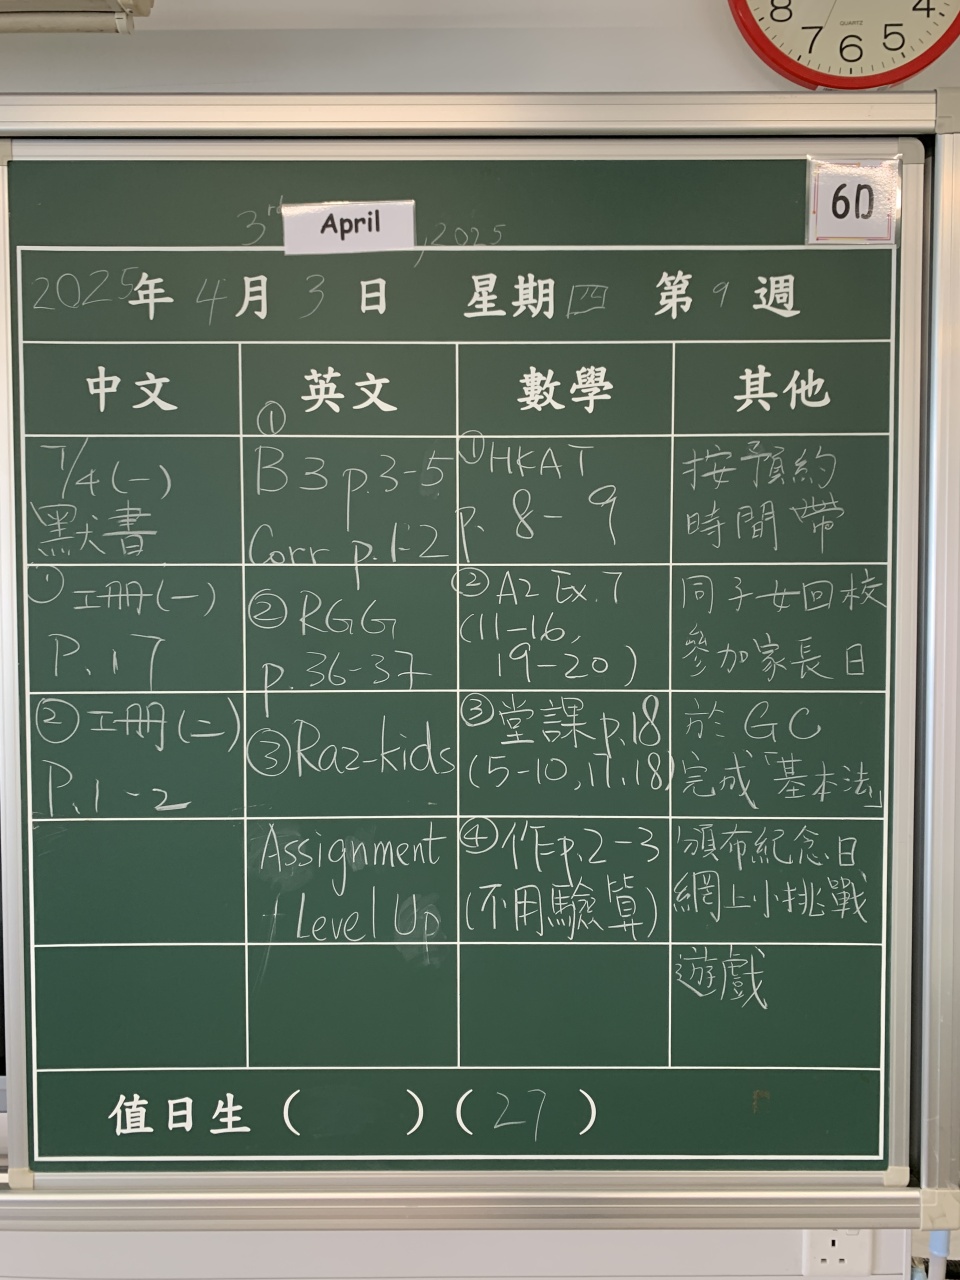 8 7 6 5 4
QUARTZ
6D
3rd April, 2025
2025年4月3日 星期四 第9週
中文 英文 數學 其他
7/4(一)
默書
①工冊(一)
P.17
②工冊(二)
P.1-2
①
B3 p.3-5
Corr p.1-2
②RGG
p.36-37
③Raz-kids
Assignment
+Level Up
①HKAT
p.8-9
②A2 Ex.7
(11-16,
19-20)
③堂課p.18
(5-10,17,18)
④作p.2-3
(不用驗算)
按預約
時間帶
同子女回校
參加家長日
於GC
完成「基本法」
頒布紀念日
網上小挑戰
遊戲
值日生( )(27)